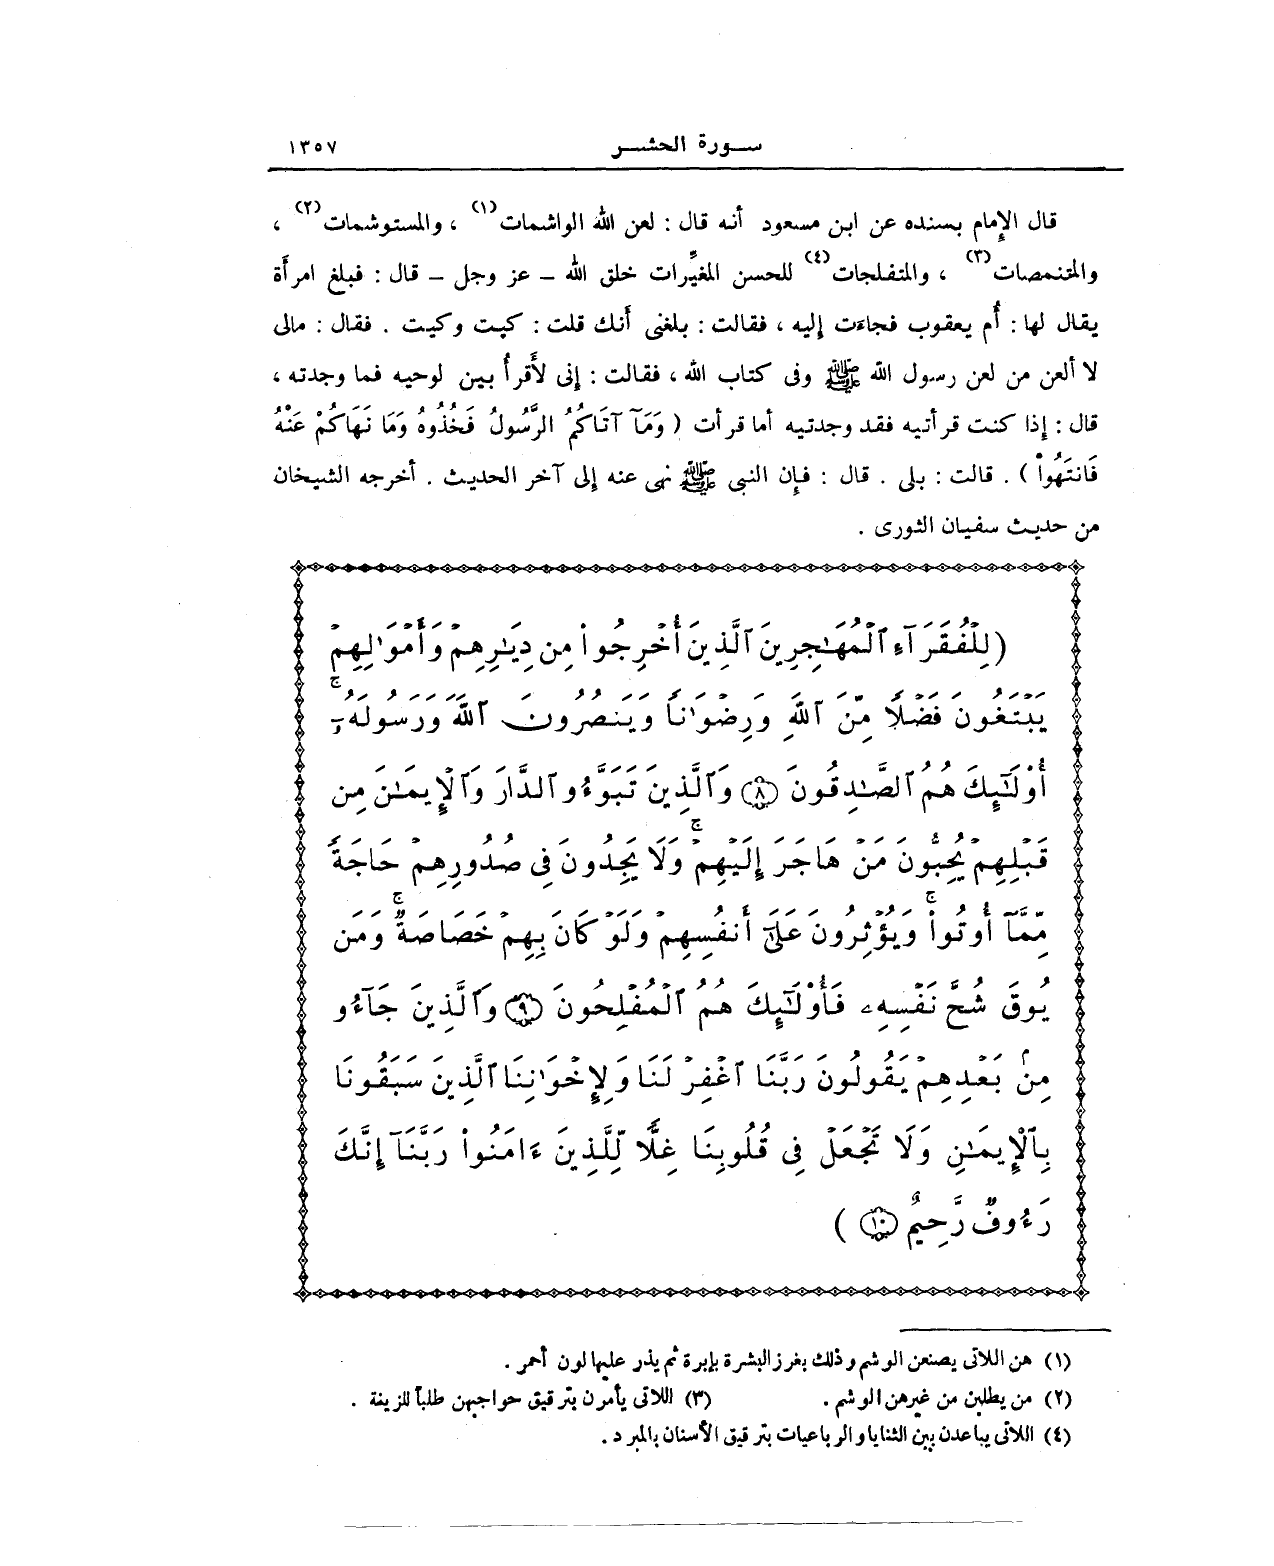 سورة الحشر ١٣٥٧
قال الإمام بسنده عن ابن مسعود أنه قال : لعن الله الواشمات(١) ، والمستوشمات(٢) ،
والمتنمصات(٣) ، والمتفلجات(٤) للحسن المغيِّرات خلق الله – عز وجل – قال : فبلغ امرأة
يقال لها : أم يعقوب فجاءت إليه ، فقالت : بلغنى أنك قلت : كيت وكيت . فقال : مالى
لا ألعن من لعن رسول الله ﷺ وفى كتاب الله ، فقالت : إنى لأقرأ بين لوحيه فما وجدته ،
قال : إذا كنت قرأتيه فقد وجدتيه أما قرأت ( وَمَآ آتَاكُمُ الرَّسُولُ فَخُذُوهُ وَمَا نَهَاكُمْ عَنْهُ
فَانتَهُواْ ) . قالت : بلى . قال : فإن النبى ﷺ نهى عنه إلى آخر الحديث . أخرجه الشيخان
من حديث سفيان الثورى .
(لِلْفُقَرَآءِ ٱلْمُهَـٰجِرِينَ ٱلَّذِينَ أُخْرِجُواْ مِن دِيَـٰرِهِمْ وَأَمْوَٰلِهِمْ
يَبْتَغُونَ فَضْلًا مِّنَ ٱللَّهِ وَرِضْوَٰنًا وَيَنصُرُونَ ٱللَّهَ وَرَسُولَهُۥٓ ۚ
أُوْلَـٰٓئِكَ هُمُ ٱلصَّـٰدِقُونَ ٨ وَٱلَّذِينَ تَبَوَّءُو ٱلدَّارَ وَٱلْإِيمَـٰنَ مِن
قَبْلِهِمْ يُحِبُّونَ مَنْ هَاجَرَ إِلَيْهِمْ ۚ وَلَا يَجِدُونَ فِى صُدُورِهِمْ حَاجَةً
مِّمَّآ أُوتُواْ ۚ وَيُؤْثِرُونَ عَلَىٰٓ أَنفُسِهِمْ وَلَوْ كَانَ بِهِمْ خَصَاصَةٌ ۚ وَمَن
يُوقَ شُحَّ نَفْسِهِۦ فَأُوْلَـٰٓئِكَ هُمُ ٱلْمُفْلِحُونَ ٩ وَٱلَّذِينَ جَآءُو
مِنۢ بَعْدِهِمْ يَقُولُونَ رَبَّنَا ٱغْفِرْ لَنَا وَلِإِخْوَٰنِنَا ٱلَّذِينَ سَبَقُونَا
بِٱلْإِيمَـٰنِ وَلَا تَجْعَلْ فِى قُلُوبِنَا غِلًّا لِّلَّذِينَ ءَامَنُواْ رَبَّنَآ إِنَّكَ
رَءُوفٌ رَّحِيمٌ ١٠ )
(١) هن اللاتى يصنعن الوشم وذلك بغرز البشرة بإبرة ثم يذر عليها لون أحمر .
(٢) من يطلبن من غيرهن الوشم . (٣) اللاتى يأمرن بترقيق حواجبهن طلباً للزينة .
(٤) اللاتى يباعدن بين الثنايا والرباعيات بترقيق الأسنان بالمبرد .